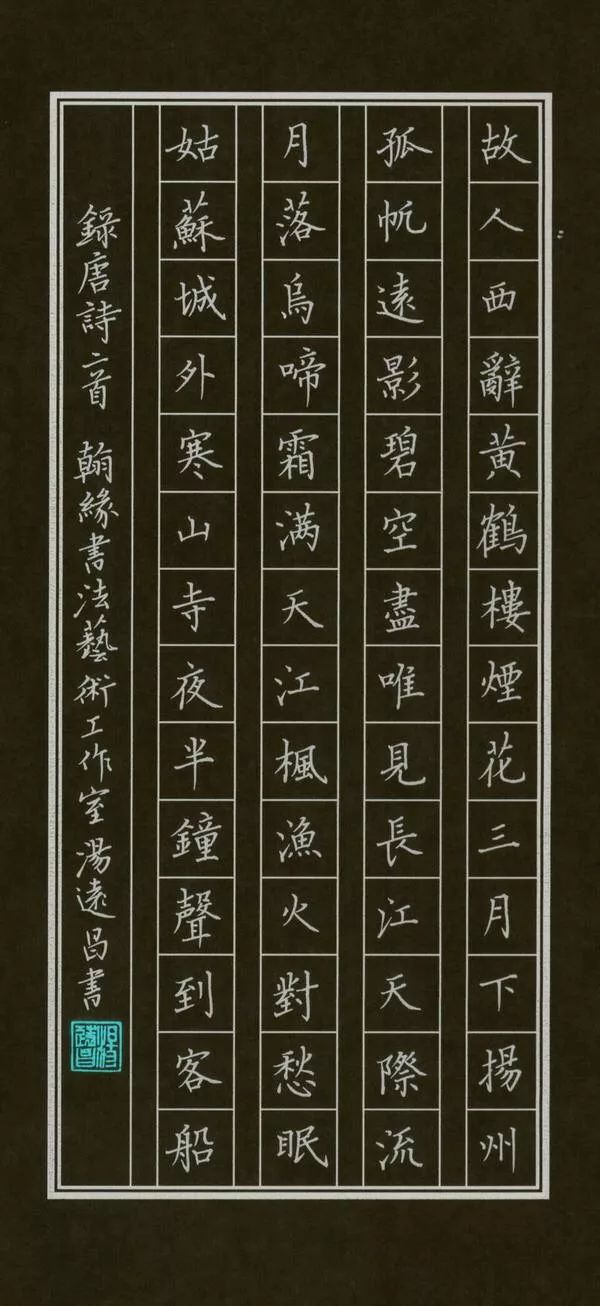 故人西辭黄鶴樓煙花三月下揚州
孤帆遠影碧空盡唯見長江天際流
月落烏啼霜满天江楓漁火對愁眠
姑蘇城外寒山寺夜半鐘聲到客船
錄唐詩二首 翰緣書法藝術工作室湯遠昌書